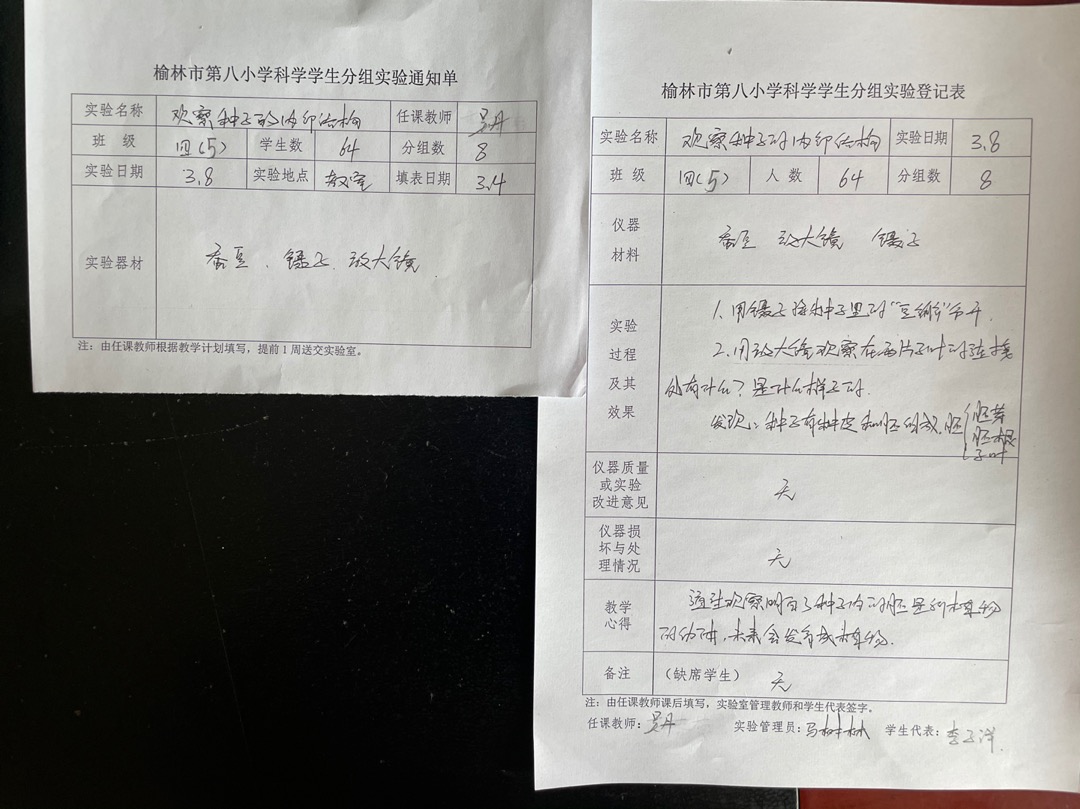 榆林市第八小学科学学生分组实验通知单
实验名称 观察种子的内部结构 任课教师 吴丹
班 级 四(5) 学生数 64 分组数 8
实验日期 3.8 实验地点 教室 填表日期 3.4
实验器材 蚕豆、镊子、放大镜
注：由任课教师根据教学计划填写，提前1周送交实验室。
榆林市第八小学科学学生分组实验登记表
实验名称 观察种子的内部结构 实验日期 3.8
班 级 四(5) 人 数 64 分组数 8
仪器
材料
蚕豆 放大镜 镊子
实验
过程
及其
效果
1.用镊子将种子里的“豆瓣”分开.
2.用放大镜观察在两片子叶的连接
处有什么？是什么样子的.
发现：种子有种皮和胚构成.胚
胚芽
胚根
子叶
仪器质量
或实验
改进意见
无
仪器损
坏与处
理情况
无
教学
心得
通过观察明白了种子内的胚是植物
的幼体,未来会发育成植物.
备注 （缺席学生） 无
注：由任课教师课后填写，实验室管理教师和学生代表签字。
任课教师：吴丹 实验管理员：马树林 学生代表：李子洋